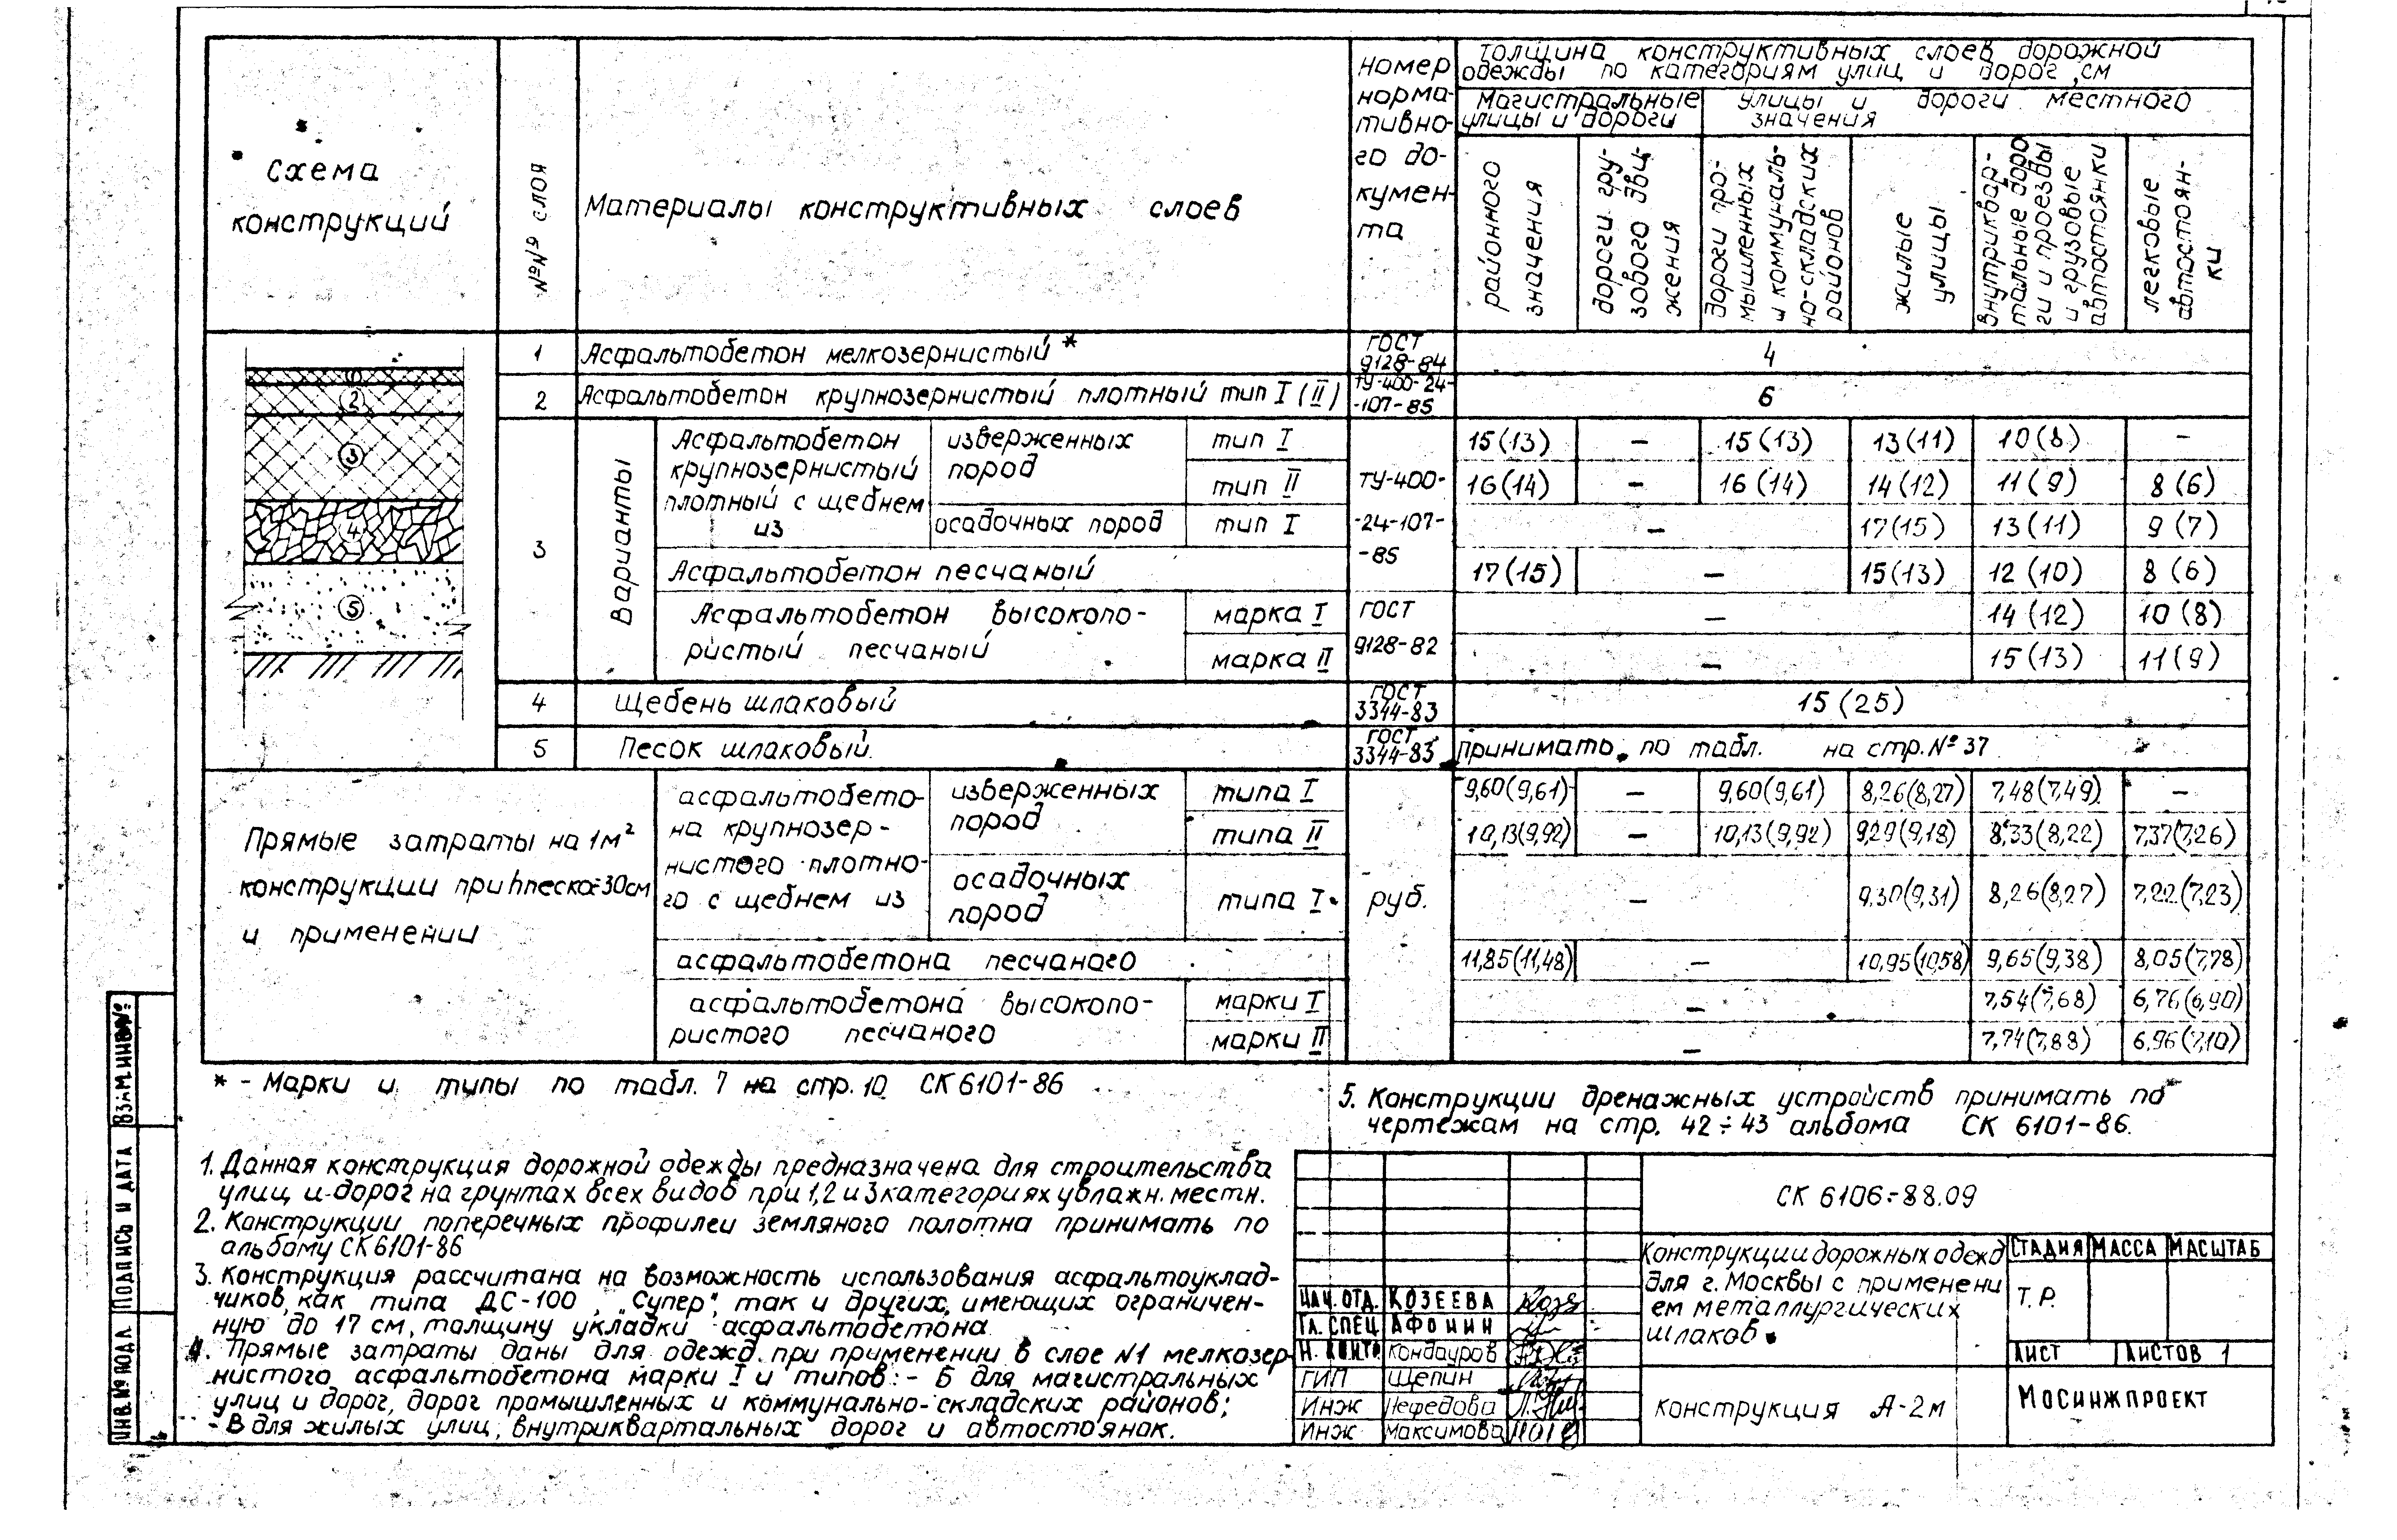 Схема
конструкций
№№ слоя
Материалы конструктивных слоев
номер
норма-
тивно-
го до-
кумен-
та
толщина конструктивных слоев дорожной
одежды по категориям улиц и дорог, см
магистральные
улицы и дороги
улицы и дороги местного
значения
районного
значения
дороги гру-
зового дви-
жения
дороги про-
мышленных
и коммуналь-
но-складских
районов
жилые
улицы
внутриквар-
тальные доро
ги и проезды
и грузовые
автостоянки
легковые
автостоян-
ки
1 Асфальтобетон мелкозернистый* ГОСТ 9128-84 4
2 Асфальтобетон крупнозернистый плотный тип I (II) ТУ-400-24-
-107-85 6
3
Варианты
Асфальтобетон
крупнозернистый
плотный с щебнем
из
изверженных
пород
тип I 15(13) – 15(13) 13(11) 10(8) –
тип II 16(14) – 16(14) 14(12) 11(9) 8(6)
осадочных пород тип I – 17(15) 13(11) 9(7)
ТУ-400-
-24-107-
-85
Асфальтобетон песчаный 17(15) – 15(13) 12(10) 8(6)
Асфальтобетон высокопо-
ристый песчаный
марка I – 14(12) 10(8)
марка II – 15(13) 11(9)
ГОСТ
9128-82
4 Щебень шлаковый ГОСТ 3344-83 15(25)
5 Песок шлаковый. ГОСТ 3344-83 принимать по табл. на стр. № 37
2
3
4
5
Прямые затраты на 1м²
конструкции при hпеска=30см
и применении
асфальтобето-
на крупнозер-
нистого плотно-
го с щебнем из
изверженных
пород
типа I 9,60(9,61) – 9,60(9,61) 8,26(8,27) 7,48(7,49) –
типа II 10,13(9,92) – 10,13(9,92) 9,29(9,18) 8,33(8,22) 7,37(7,26)
осадочных
пород
типа I – 9,30(9,31) 8,26(8,27) 7,22(7,23)
руб.
асфальтобетона песчаного 11,85(11,48) – 10,95(10,58) 9,65(9,38) 8,05(7,78)
асфальтобетона высокопо-
ристого песчаного
марки I – 7,54(7,68) 6,76(6,90)
марки II – 7,74(7,88) 6,96(7,10)
* - Марки и типы по табл. 7 на стр. 10 СК 6101-86
1. Данная конструкция дорожной одежды предназначена для строительства
улиц и дорог на грунтах всех видов при 1,2 и 3 категориях увлажн. местн.
2. Конструкции поперечных профилей земляного полотна принимать по
альбому СК 6101-86
3. Конструкция рассчитана на возможность использования асфальтоуклад-
чиков, как типа ДС-100, „Супер", так и других, имеющих ограничен-
ную до 17 см, толщину укладки асфальтобетона
4. Прямые затраты даны для одежд при применении в слое №1 мелкозер-
нистого асфальтобетона марки I и типов: - Б для магистральных
улиц и дорог, дорог промышленных и коммунально-складских районов;
- В для жилых улиц, внутриквартальных дорог и автостоянок.
5. Конструкции дренажных устройств принимать по
чертежам на стр. 42÷43 альбома СК 6101-86.
СК 6106-88.09
Конструкции дорожных одежд
для г. Москвы с применени
ем металлургических
шлаков
СТАДИЯ МАССА МАСШТАБ
Т.Р.
ЛИСТ ЛИСТОВ 1
конструкция А-2м
МОСИНЖПРОЕКТ
НАЧ. ОТД. КОЗЕЕВА
ГЛ. СПЕЦ АФОНИН
Н. КОНТР. Кондауров
ГИП Щепин
Инж Нефедова
Инж Максимова
ВЗАМ.ИНВ.№
ПОДПИСЬ И ДАТА
ИНВ.№ ПОДЛ